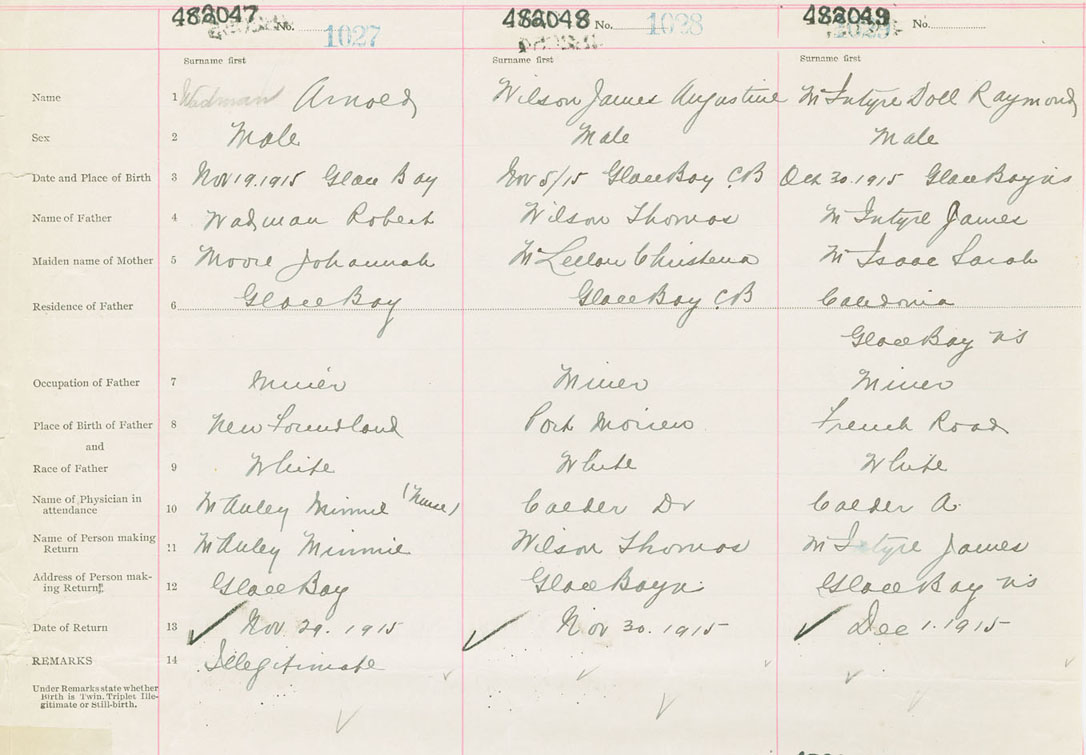 482047 No. 1027 482048 No. 1028 482049 No. 1029
Surname first Surname first Surname first
Name 1 Wadman Arnold Wilson James Augustine McIntyre Doll Raymond
Sex 2 Male Male Male
Date and Place of Birth 3 Nov 19. 1915 Glace Bay Nov 5/15 Glace Bay C.B Oct 30. 1915 Glace Bay NS
Name of Father 4 Wadman Robert Wilson Thomas McIntyre James
Maiden name of Mother 5 Moore Johannah Christena McIsaac Sarah
Residence of Father 6 Glace Bay Glace Bay C.B Caledonia
Glace Bay NS
Occupation of Father 7 Miner Miner Miner
Place of Birth of Father 8 New Foundland Port Morien French Road
and
Race of Father 9 White White White
Name of Physician in
attendance 10 McAuley Minnie (Nurse) Calder Dr Calder A.
Name of Person making
Return 11 McAuley Minnie Wilson Thomas McIntyre James
Address of Person mak-
ing Return 12 Glace Bay Glace Bay Glace Bay NS
Date of Return 13 Nov. 29. 1915 Nov 30. 1915 Dec 1. 1915
REMARKS 14 Illegitimate
Under Remarks state whether
Birth is Twin, Triplet Ille-
gitimate or Still-birth.